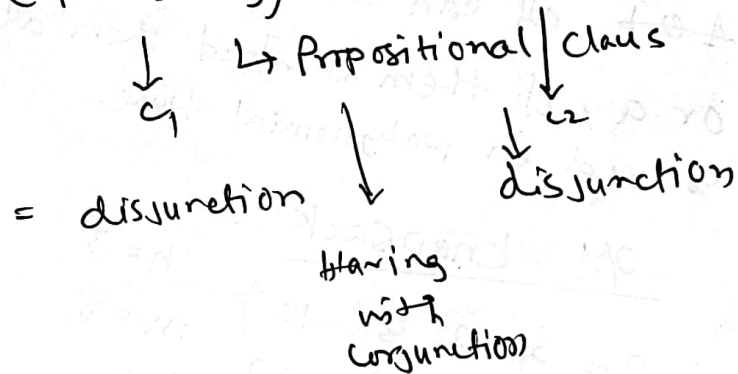 ↳ Propositional | Claus
C1
C2
= disjunction
disjunction
Having
with
conjunction